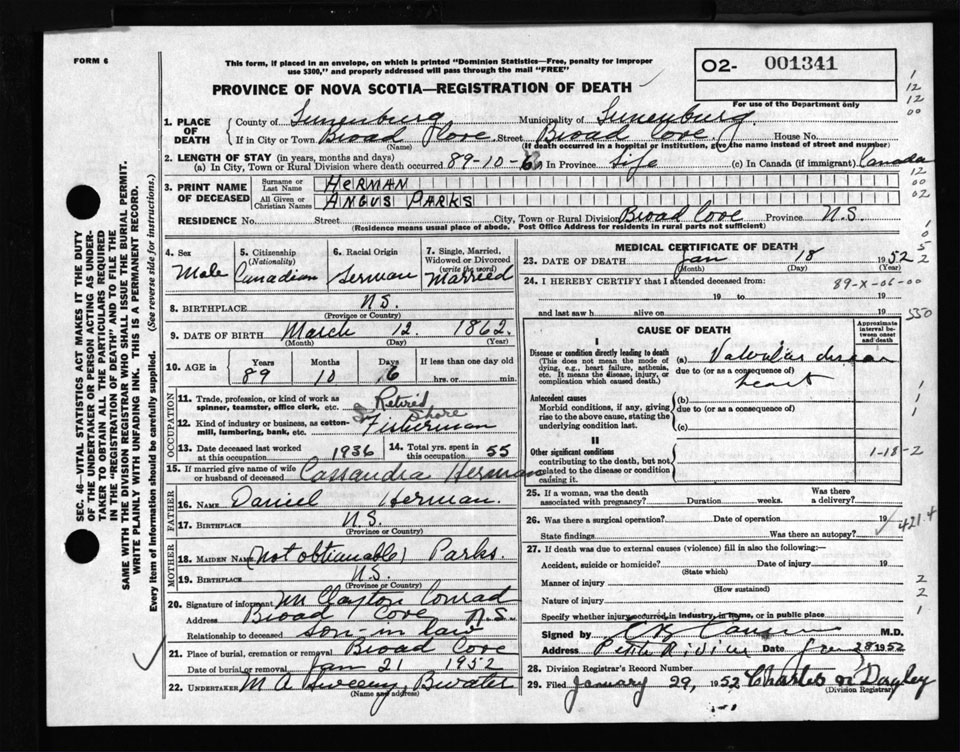 FORM 6
This form, if placed in an envelope, on which is printed "Dominion Statistics—Free, penalty for improper
use $300," and properly addressed will pass through the mail "FREE"
O2- 001341
For use of the Department only
PROVINCE OF NOVA SCOTIA—REGISTRATION OF DEATH
1. PLACE OF DEATH
County of Lunenburg Municipality of Lunenburg
If in City or Town Broad Cove Street Broad Cove House No.
(Name) (If death occurred in a hospital or institution, give the name instead of street and number)
2. LENGTH OF STAY (in years, months and days)
(a) In City, Town or Rural Division where death occurred 89-10-6 (b) In Province Life (c) In Canada (if immigrant) Canada
3. PRINT NAME OF DECEASED
Surname or Last Name HERMAN
All Given or Christian Names ANGUS PARKS
RESIDENCE No. Street City, Town or Rural Division Broad Cove Province N.S.
(Residence means usual place of abode. Post Office Address for residents in rural parts not sufficient)
4. Sex Male
5. Citizenship (Nationality) Canadian
6. Racial Origin German
7. Single, Married, Widowed or Divorced (write the word) Married
8. BIRTHPLACE N.S.
(Province or Country)
9. DATE OF BIRTH March 12. 1862.
(Month) (Day) (Year)
10. AGE in Years 89 Months 10 Days 6 If less than one day old
hrs. or min.
OCCUPATION
11. Trade, profession, or kind of work as spinner, teamster, office clerk, etc. Retired
12. Kind of industry or business, as cotton-mill, lumbering, bank, etc. Shore Fisherman
13. Date deceased last worked at this occupation 1936
14. Total yrs. spent in this occupation 55
15. If married give name of wife or husband of deceased Cassandra Herman
FATHER
16. NAME Daniel Herman.
17. BIRTHPLACE N.S.
(Province or Country)
MOTHER
18. MAIDEN NAME (not obtainable) Parks.
19. BIRTHPLACE N.S.
(Province or Country)
20. Signature of informant Clayton Conrad
Address Broad Cove N.S.
Relationship to deceased son-in law
21. Place of burial, cremation or removal Broad Cove
Date of burial or removal Jan 21 1952
22. UNDERTAKER M A Sweeny, Bwater
(Name and address)
MEDICAL CERTIFICATE OF DEATH
23. DATE OF DEATH Jan 18 1952
(Month) (Day) (Year)
24. I HEREBY CERTIFY that I attended deceased from:
89-X-06-00
19 to 19
and last saw h alive on 19
550
CAUSE OF DEATH
Approximate interval between onset and death
I
Disease or condition directly leading to death
(This does not mean the mode of dying, e.g., heart failure, asthenia, etc. It means the disease, injury, or complication which caused death.)
(a) Valvular disease
due to (or as a consequence of)
heart
Antecedent causes
Morbid conditions, if any, giving rise to the above cause, stating the underlying condition last.
(b)
due to (or as a consequence of)
(c)
II
Other significant conditions
contributing to the death, but not related to the disease or condition causing it.
1-18-2
25. If a woman, was the death associated with pregnancy? Duration weeks. Was there a delivery?
26. Was there a surgical operation? Date of operation 19
State findings Was there an autopsy?
421.4
27. If death was due to external causes (violence) fill in also the following:—
Accident, suicide or homicide? Date of injury 19
(State which)
Manner of injury
(How sustained)
Nature of injury
Specify whether injury occurred in industry, in home, or in public place
Signed by M.D.
Address Petite Riviere Date Jan 28 1952
28. Division Registrar's Record Number
29. Filed January 29, 1952 Charles Dagley
(Division Registrar)
SEC. 46—VITAL STATISTICS ACT MAKES IT THE DUTY
OF THE UNDERTAKER OR PERSON ACTING AS UNDER-
TAKER TO OBTAIN ALL THE PARTICULARS REQUIRED
IN THE "REGISTRATION OF DEATH" AND TO FILE THE
SAME WITH THE DIVISION REGISTRAR WHO SHALL ISSUE THE BURIAL PERMIT.
WRITE PLAINLY WITH UNFADING INK. THIS IS A PERMANENT RECORD.
Every item of Information should be carefully supplied. (See reverse side for instructions.)